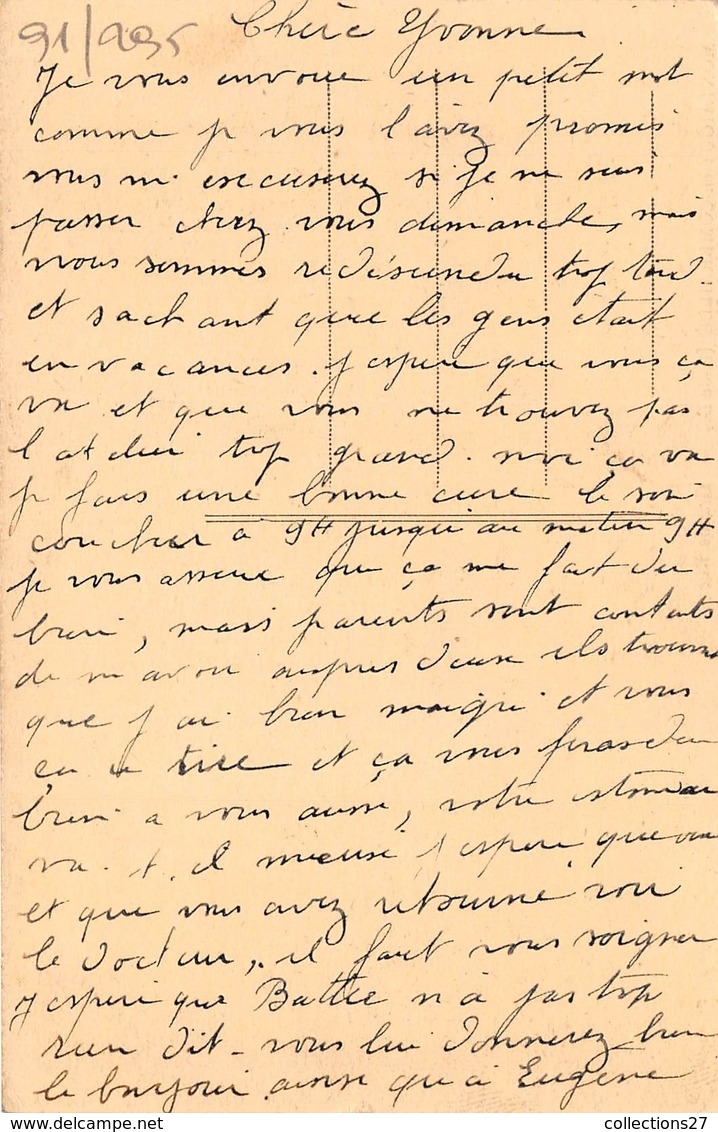 91/295
Chère Yvonne
Je vous envoue un petit mot
comme je vous l'avez promis
vous m'excuserez si je ne suis
passer cherz vous dimanche, mais
nous sommes redéscendu trop tard
et sachant que les gens était
en vacances. j'espere que vous ça
va et que vous ne trouvez pas
l'atelier trop grand. moi ça va
je fais une bonne cure le soir
coucher à 9H jusqu'au matin 9H
je vous assure que ça me fait du
bien, mais parents sont contents
de m'avoir auspres d'eux ils trouvent
que j'ai bien maigri et vous
ça a et ça vous feras du
bien a vous aussi, votre estomac
va. t. il mieux j'espere que oui
et que vous avez retourné voir
le docteur, il faut vous soigner
J'espere que n'a pas trop
rien dit - vous lui donnerez bien
le bonjour ainsi que à Eugène
collections27